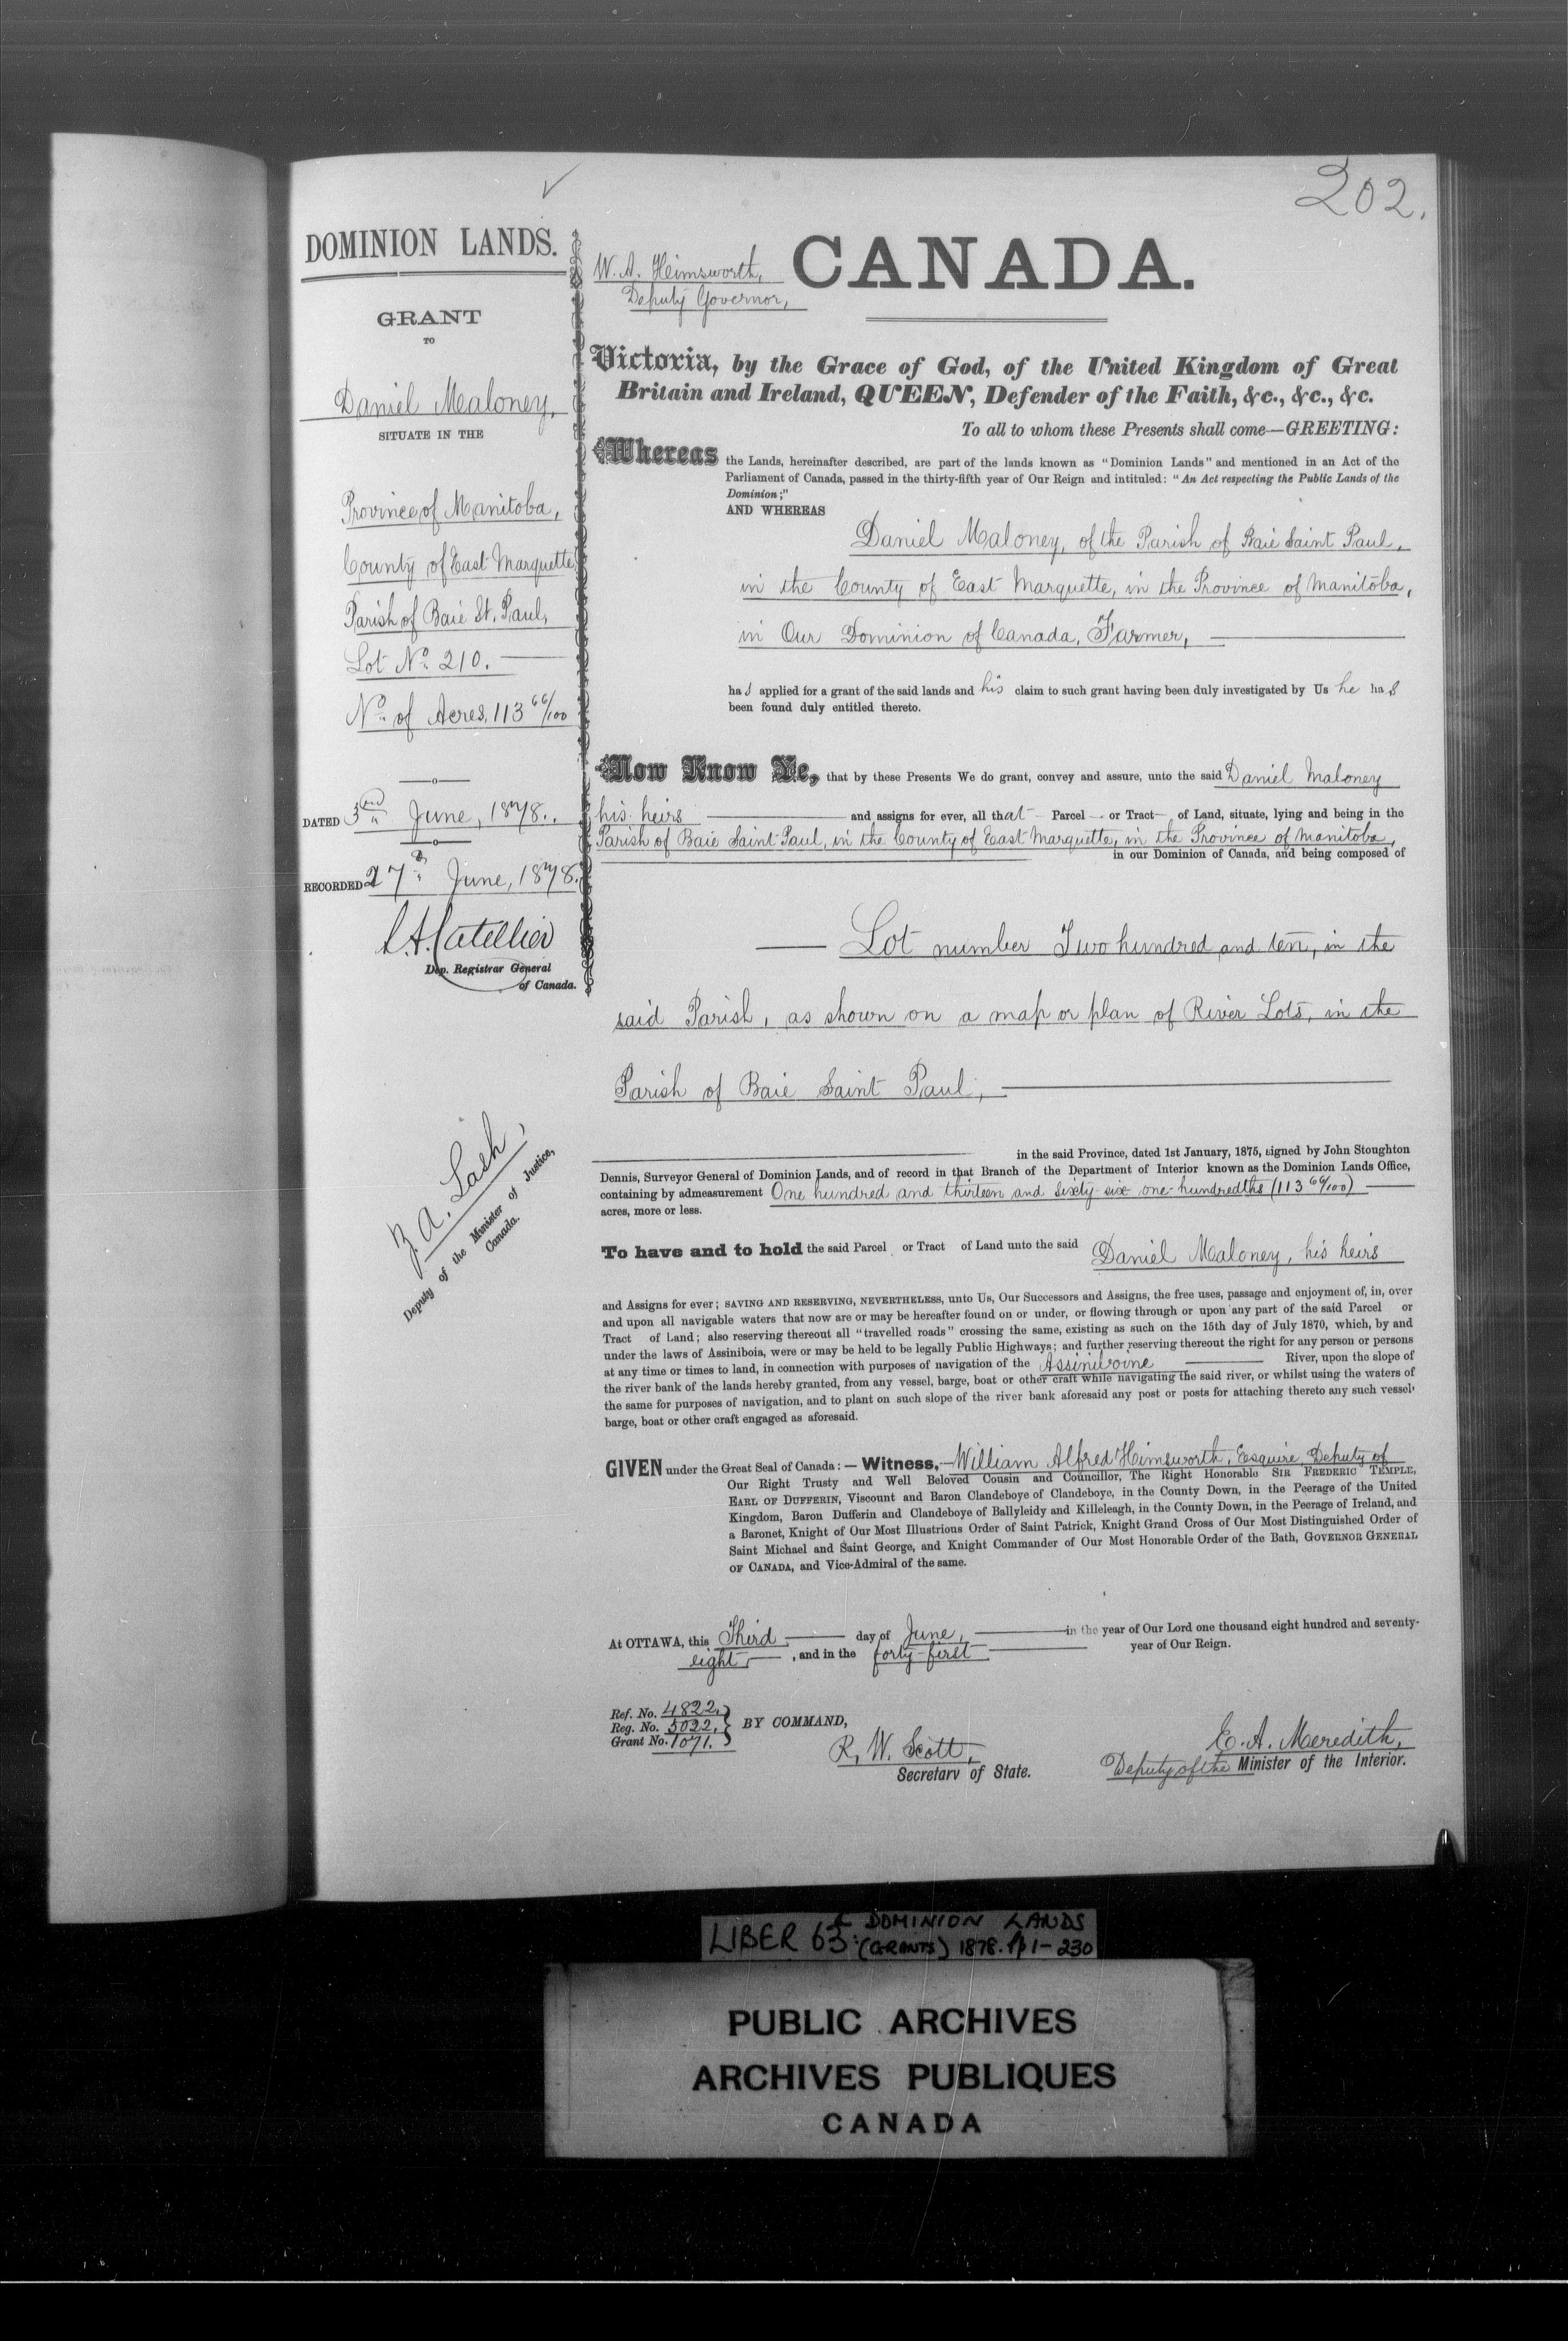 202.
DOMINION LANDS.
GRANT
TO
Daniel Maloney,
SITUATE IN THE
Province of Manitoba,
County of East Marquette
Parish of Baie St. Paul,
Lot No. 210.
No. of Acres, 113 66/100
DATED 3rd June, 1878.
RECORDED 27th June, 1878.
L.A. Catellier
Dep. Registrar General
of Canada.
Z. A. Lash,
Deputy of the Minister of Justice,
Canada.
W. A. Himsworth,
Deputy Governor,
CANADA.
Victoria, by the Grace of God, of the United Kingdom of Great
Britain and Ireland, QUEEN, Defender of the Faith, &c., &c., &c.
To all to whom these Presents shall come—GREETING:
Whereas the Lands, hereinafter described, are part of the lands known as "Dominion Lands" and mentioned in an Act of the
Parliament of Canada, passed in the thirty-fifth year of Our Reign and intituled: "An Act respecting the Public Lands of the
Dominion;"
AND WHEREAS
Daniel Maloney, of the Parish of Baie Saint Paul,
in the County of East Marquette, in the Province of Manitoba,
in Our Dominion of Canada, Farmer,
has applied for a grant of the said lands and his claim to such grant having been duly investigated by Us he has
been found duly entitled thereto.
Now Know Ye, that by these Presents We do grant, convey and assure, unto the said Daniel Maloney
his heirs and assigns for ever, all that Parcel or Tract of Land, situate, lying and being in the
Parish of Baie Saint Paul, in the County of East Marquette, in the Province of Manitoba,
in our Dominion of Canada, and being composed of
Lot number Two hundred and ten, in the
said Parish, as shown on a map or plan of River Lots, in the
Parish of Baie Saint Paul,
in the said Province, dated 1st January, 1875, signed by John Stoughton
Dennis, Surveyor General of Dominion Lands, and of record in that Branch of the Department of Interior known as the Dominion Lands Office,
containing by admeasurement One hundred and thirteen and sixty-six one-hundredths (113 66/100)
acres, more or less.
To have and to hold the said Parcel or Tract of Land unto the said Daniel Maloney, his heirs
and Assigns for ever; SAVING AND RESERVING, NEVERTHELESS, unto Us, Our Successors and Assigns, the free uses, passage and enjoyment of, in, over
and upon all navigable waters that now are or may be hereafter found on or under, or flowing through or upon any part of the said Parcel or
Tract of Land; also reserving thereout all "travelled roads" crossing the same, existing as such on the 15th day of July 1870, which, by and
under the laws of Assiniboia, were or may be held to be legally Public Highways; and further reserving thereout the right for any person or persons
at any time or times to land, in connection with purposes of navigation of the Assiniboine River, upon the slope of
the river bank of the lands hereby granted, from any vessel, barge, boat or other craft while navigating the said river, or whilst using the waters of
the same for purposes of navigation, and to plant on such slope of the river bank aforesaid any post or posts for attaching thereto any such vessel,
barge, boat or other craft engaged as aforesaid.
GIVEN under the Great Seal of Canada:—Witness,—William Alfred Himsworth, Esquire, Deputy of
Our Right Trusty and Well Beloved Cousin and Councillor, The Right Honorable SIR FREDERIC TEMPLE,
EARL OF DUFFERIN, Viscount and Baron Clandeboye of Clandeboye, in the County Down, in the Peerage of the United
Kingdom, Baron Dufferin and Clandeboye of Ballyleidy and Killeleagh, in the County Down, in the Peerage of Ireland, and
a Baronet, Knight of Our Most Illustrious Order of Saint Patrick, Knight Grand Cross of Our Most Distinguished Order of
Saint Michael and Saint George, and Knight Commander of Our Most Honorable Order of the Bath, GOVERNOR GENERAL
OF CANADA, and Vice-Admiral of the same.
At OTTAWA, this Third day of June, in the year of Our Lord one thousand eight hundred and seventy-
eight, and in the forty-first year of Our Reign.
Ref. No. 4822,
Reg. No. 5022,
Grant No. 1071.
BY COMMAND,
R. W. Scott,
Secretary of State.
E. A. Meredith,
Deputy of the Minister of the Interior.
LIBER 63: DOMINION LANDS
(GRANTS) 1878. pp 1-230
PUBLIC ARCHIVES
ARCHIVES PUBLIQUES
CANADA